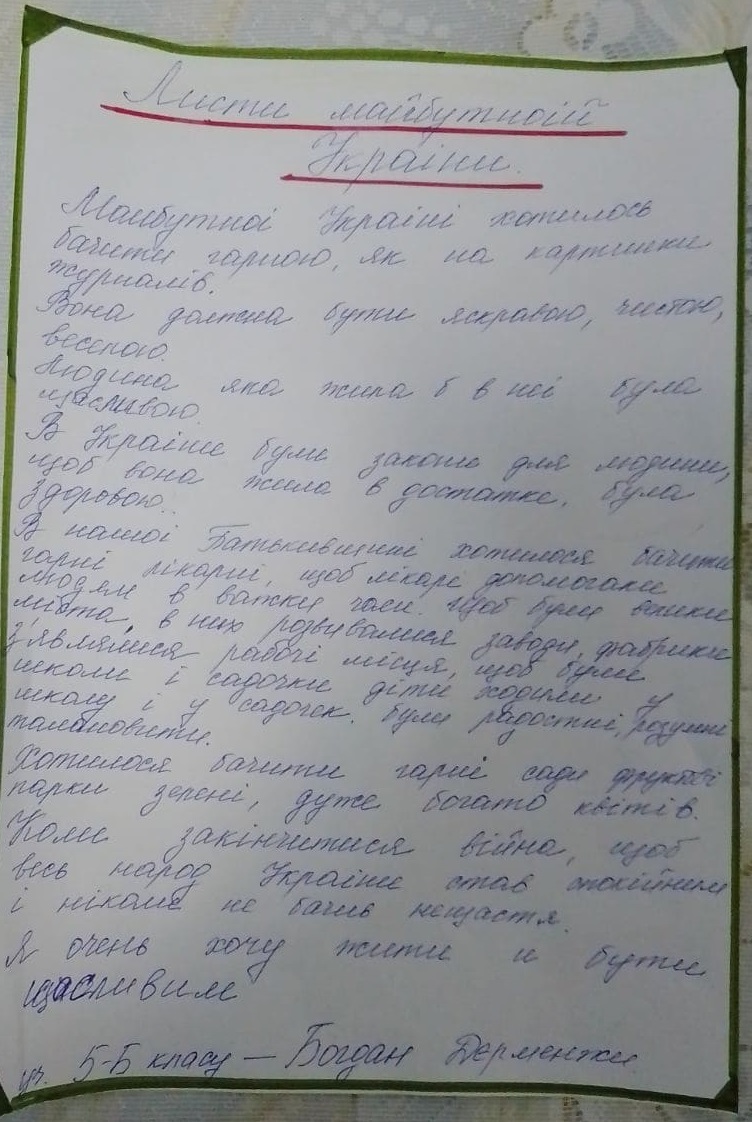 Листи майбутноій
Україіни.
Майбутноі Україні хотилось
бачити гарною, як на картинки
журналів.
Вона должна бути яскравою, чистою,
веселою.
Людина яка жила б в неі була
щасливою.
В Україіне були закони для людини,
щоб вона жила в достатке, була
здоровою.
В нашоі Батькивщині хотилося бачити
гарні лікарні, щоб лікарі допомогали
людям в важки часи. Щоб були велики
міста, в них розвивалися заводи, фабрики
з'являлися рабочі місця, щоб були
школи і садочки діти ходили у
школу і у садочек. були радостні, розумні
талановити.
Хотилося бачити гарні сади фруктові
парки зелені, дуже богато квітів.
Коли закінчитися війна, щоб
весь народ Україіни став спокійним
і ніколи не бачив нещастя.
Я очень хочу жити и бути
щасливим
уч. 5-Б класу — Богдан Дерменжи